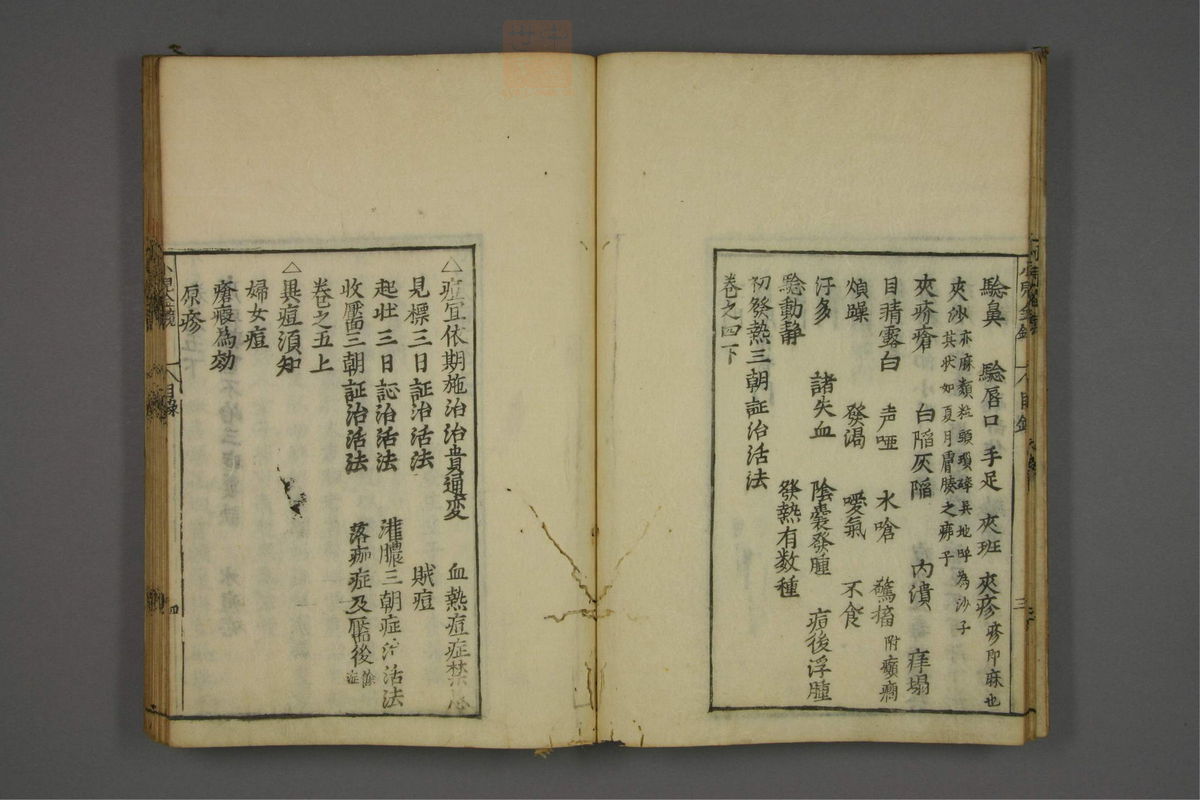 驗鼻　驗唇口　手足　夾班　夾疹疹即麻也
夾沙亦麻類粒頭瑣碎呉地呼為沙子
其状如夏月膚腠之疿子
夾疥瘡　白陷灰陷　内潰　痒塌
目睛露白　声啞　水嗆　驚搐附癲癇
煩躁　發渴　噯氣　不食
汗多　諸失血　陰嚢發腫　痘後浮腫
驗動静　發熱有数種
初發熱三朝証治活法
巻之四下
△痘宜依期施治治貴通変　血熱痘症禁忌
見標三日証治活法　賊痘
起壮三日証治活法　灌膿三朝症治活法
收靨三朝証治活法　落痂症及靨後餘症
巻之五上
△異痘須知
婦女痘
瘡瘢為効
原疹
目録
四